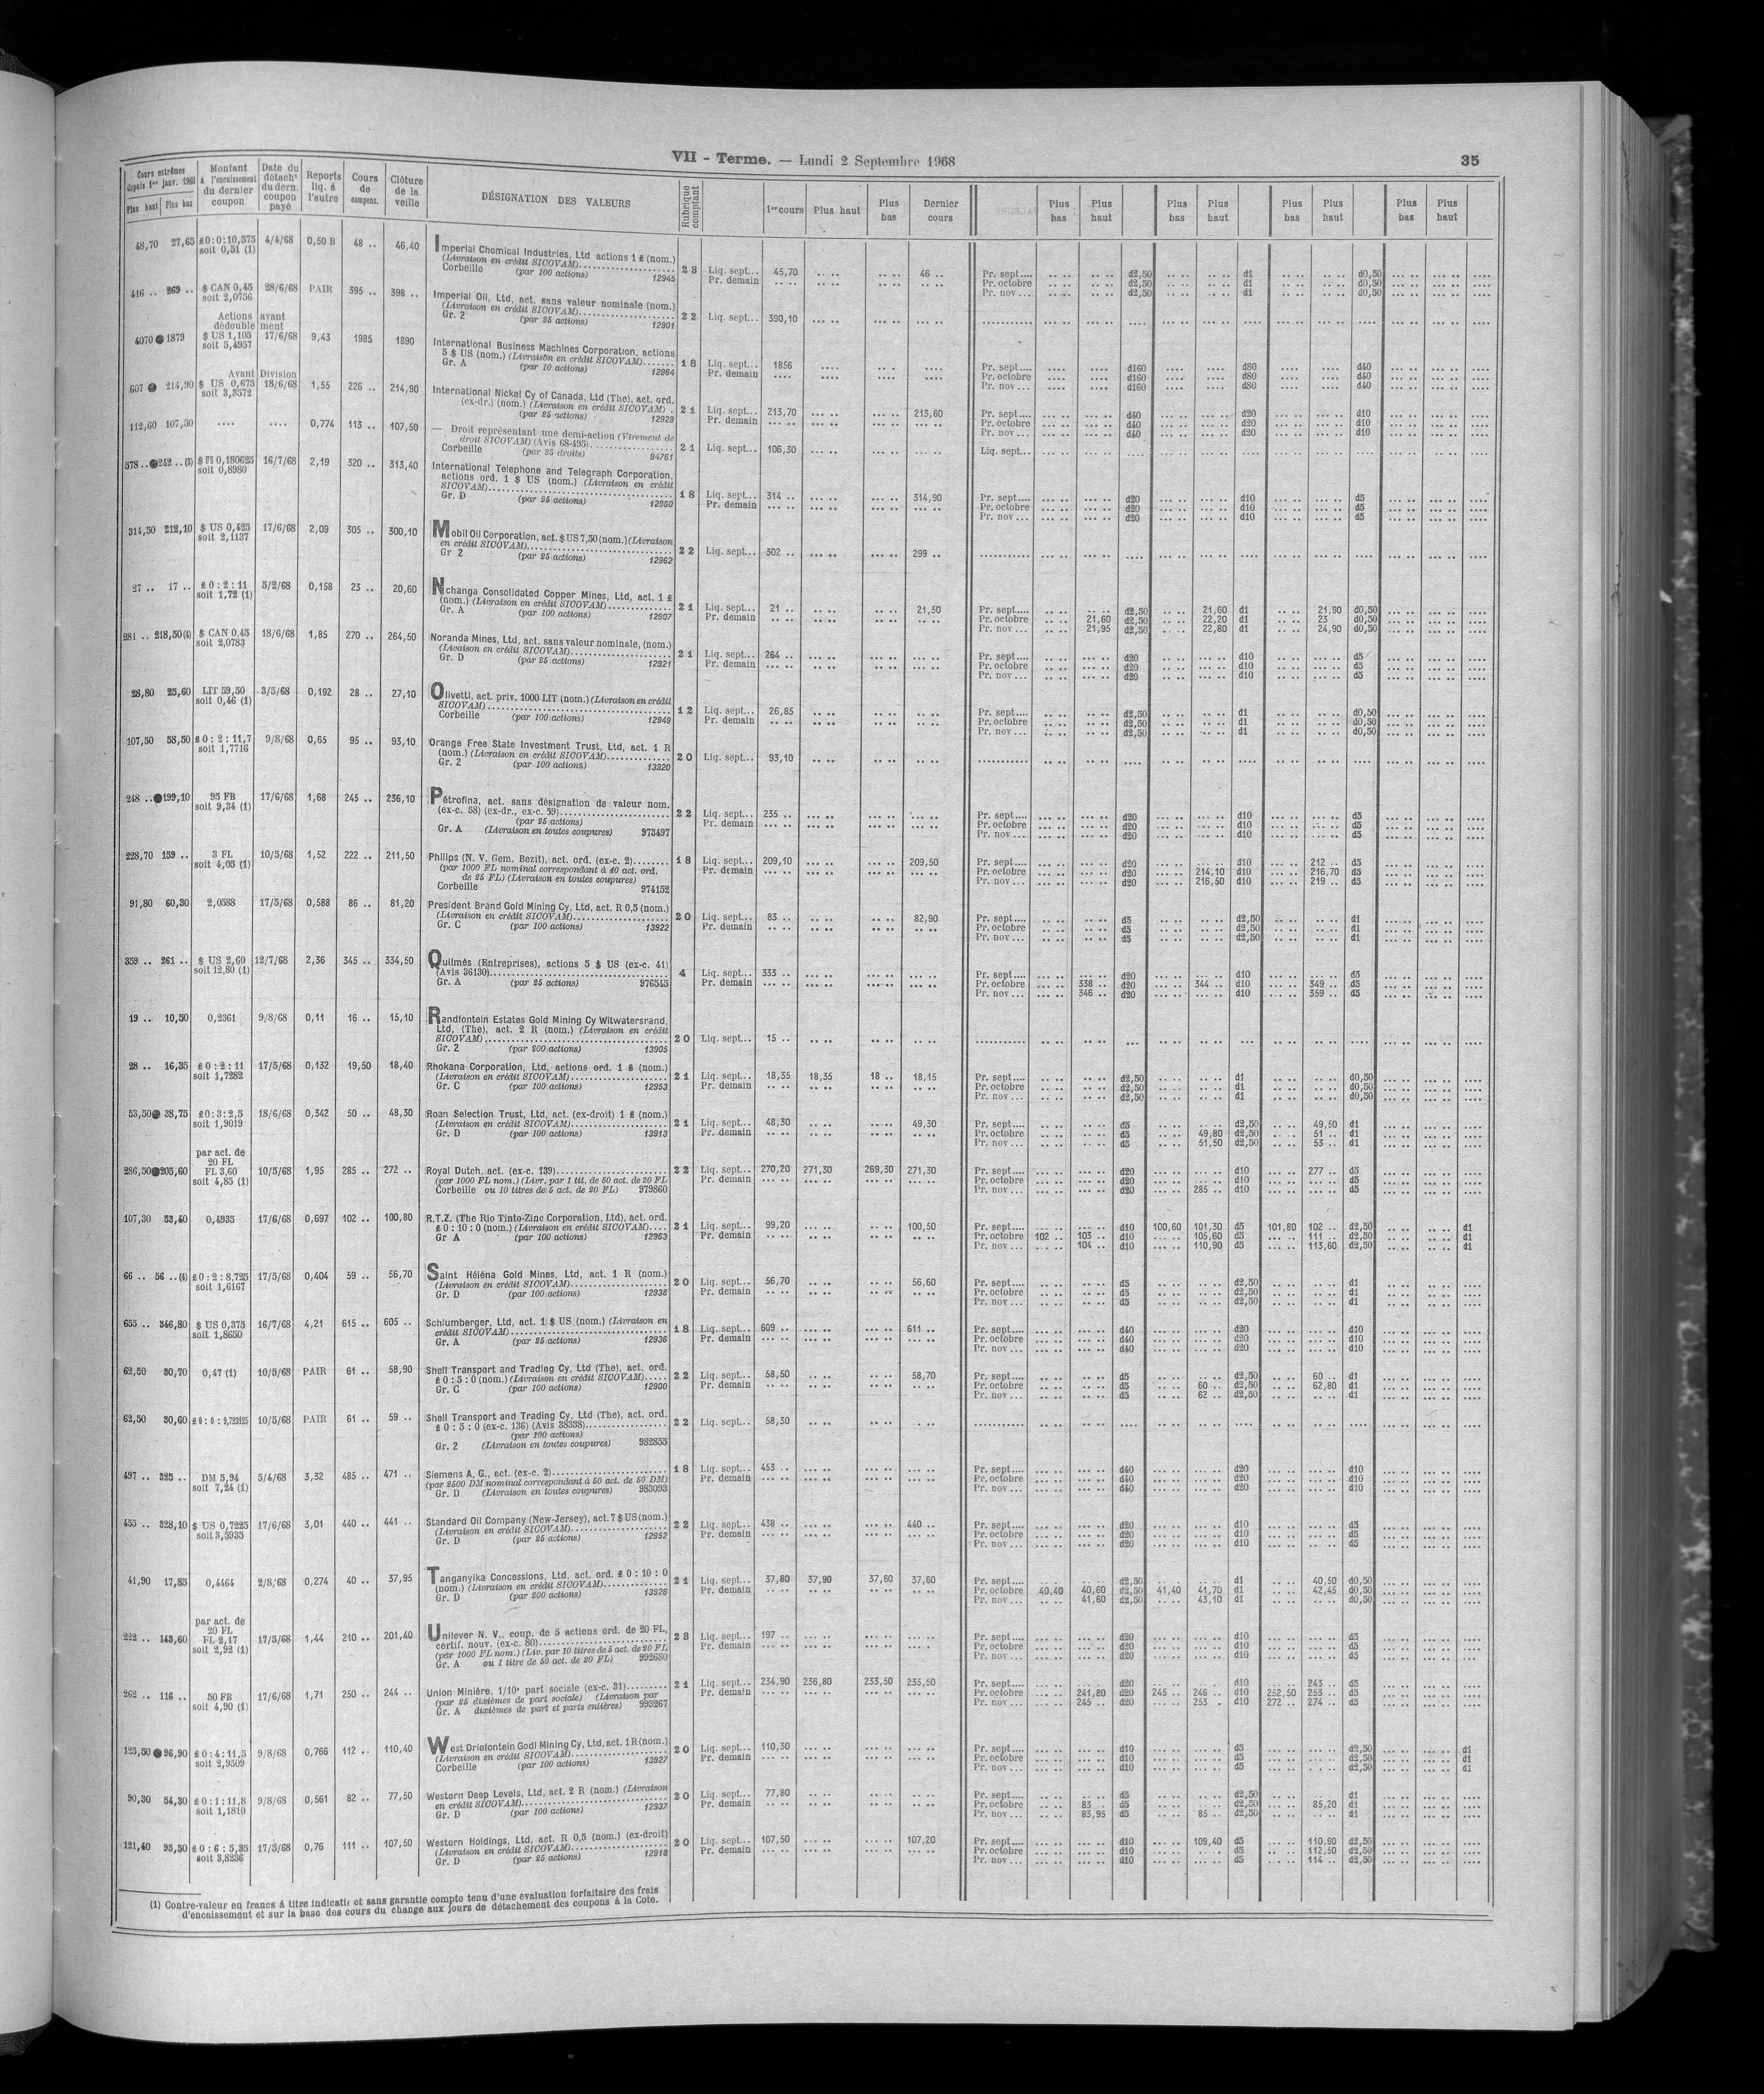 VII - Terme. — Lundi 2 Septembre 1968 35
Cours extrêmes depuis 1er janv. 1968 Plus haut Plus bas | Montant à l'encaissement du dernier coupon | Date du détacht du dern. coupon payé | Reports liq. à l'autre | Cours de compens. | Clôture de la veille | DÉSIGNATION DES VALEURS | Rubrique comptant | 1er cours | Plus haut | Plus bas | Dernier cours | Plus bas | Plus haut | Plus bas | Plus haut | Plus bas | Plus haut | Plus bas | Plus haut
48,70 27,65 £0:0:10,575 4/4/68 0,50 B 48 .. 46,40 Imperial Chemical Industries, Ltd actions 1 £ (nom.)
soit 0,51 (1) (Livraison en crédit SICOVAM)
Corbeille (par 100 actions) 12945 23 Liq. sept... 45,70 46 .. Pr. sept.... d2,50 d1 d0,50
Pr. demain Pr. octobre d2,50 d1 d0,50
Pr. nov... d2,50 d1 d0,50
416 .. 269 .. $ CAN 0,45 28/6/68 PAIR 395 .. 398 .. Imperial Oil, Ltd, act. sans valeur nominale (nom.)
soit 2,0756 (Livraison en crédit SICOVAM)
Gr. 2 (par 25 actions) 12901 22 Liq. sept... 390,10
Actions avant
dédoublement
4070 ● 1879 $ US 1,105 17/6/68 9,43 1985 1890 International Business Machines Corporation, actions
soit 5,4957 5 $ US (nom.) (Livraison en crédit SICOVAM)
Gr. A (par 10 actions) 12864 18 Liq. sept... 1856 Pr. sept.... d160 d80 d40
Pr. demain Pr. octobre d160 d80 d40
Pr. nov... d160 d80 d40
Avant Division
607 ● 214,90 $ US 0,675 18/6/68 1,55 226 .. 214,90 International Nickel Cy of Canada, Ltd (The), act. ord.
soit 3,3572 (ex-dr.) (nom.) (Livraison en crédit SICOVAM) .
(par 25 actions) 12929 21 Liq. sept... 213,70 213,60 Pr. sept.... d40 d20 d10
Pr. demain Pr. octobre d40 d20 d10
Pr. nov... d40 d20 d10
112,60 107,50 .... .... 0,774 113 .. 107,50 — Droit représentant une demi-action (Virement de
droit SICOVAM) (Avis 68-495)
Corbeille (par 25 droits) 94761 21 Liq. sept... 106,30 Liq. sept...
578 .. ● 242 .. (3) $ US 0,180625 16/7/68 2,19 320 .. 313,40 International Telephone and Telegraph Corporation,
soit 0,8980 actions ord. 1 $ US (nom.) (Livraison en crédit
SICOVAM)
Gr. D (par 25 actions) 12960 18 Liq. sept... 314 .. 314,90 Pr. sept.... d20 d10 d5
Pr. demain Pr. octobre d20 d10 d5
Pr. nov... d20 d10 d5
314,50 212,10 $ US 0,425 17/6/68 2,09 305 .. 300,10 Mobil Oil Corporation, act. $ US 7,50 (nom.) (Livraison
soit 2,1137 en crédit SICOVAM)
Gr 2 (par 25 actions) 12962 22 Liq. sept... 302 .. 299 ..
27 .. 17 .. £ 0 : 2 : 11 5/2/68 0,158 23 .. 20,60 Nchanga Consolidated Copper Mines, Ltd, act. 1 £
soit 1,72 (1) (nom.) (Livraison en crédit SICOVAM)
Gr. A (par 100 actions) 12907 21 Liq. sept... 21 .. 21,50 Pr. sept.... d2,50 21,60 d1 21,90 d0,50
Pr. demain Pr. octobre 21,60 d2,50 22,20 d1 23 d0,50
Pr. nov... 21,95 d2,50 22,80 d1 24,90 d0,50
281 .. 218,50(4) $ CAN 0,45 18/6/68 1,85 270 .. 264,50 Noranda Mines, Ltd, act. sans valeur nominale, (nom.)
soit 2,0783 (Livaison en crédit SICOVAM)
Gr. D (par 25 actions) 12921 21 Liq. sept... 264 .. Pr. sept.... d20 d10 d5
Pr. demain Pr. octobre d20 d10 d5
Pr. nov... d20 d10 d5
28,80 25,60 LIT 59,50 3/5/68 0,192 28 .. 27,10 Olivetti, act. priv. 1000 LIT (nom.) (Livraison en crédit
soit 0,46 (1) SICOVAM)
Corbeille (par 100 actions) 12949 12 Liq. sept... 26,85 Pr. sept.... d2,50 d1 d0,50
Pr. demain Pr. octobre d2,50 d1 d0,50
Pr. nov... d2,50 d1 d0,50
107,50 58,50 £ 0 : 2 : 11,7 9/8/68 0,65 95 .. 93,10 Orange Free State Investment Trust, Ltd, act. 1 R
soit 1,7716 (nom.) (Livraison en crédit SICOVAM)
Gr. 2 (par 100 actions) 13920 20 Liq. sept... 93,10
248 .. ● 199,10 95 FB 17/6/68 1,68 245 .. 236,10 Pétrofina, act. sans désignation de valeur nom.
soit 9,34 (1) (ex-c. 58) (ex-dr., ex-c. 59) 22 Liq. sept... 235 .. Pr. sept.... d20 d10 d5
(par 25 actions) Pr. demain Pr. octobre d20 d10 d5
Gr. A (Livraison en toutes coupures) 973497 Pr. nov... d20 d10 d5
228,70 159 .. 3 FL 10/5/68 1,52 222 .. 211,50 Philips (N. V. Gem. Bezit), act. ord. (ex-c. 2) 18 Liq. sept... 209,10 209,50 Pr. sept.... d20 d10 212 .. d5
soit 4,05 (1) (par 1000 FL nominal correspondant à 40 act. ord. Pr. demain Pr. octobre d20 214,10 d10 216,70 d5
de 25 FL) (Livraison en toutes coupures) Pr. nov... d20 216,50 d10 219 .. d5
Corbeille 974152
91,80 60,30 2,0588 17/5/68 0,588 86 .. 81,20 President Brand Gold Mining Cy, Ltd, act. R 0,5 (nom.)
(Livraison en crédit SICOVAM) 20 Liq. sept... 83 .. 82,90 Pr. sept.... d5 d2,50 d1
Gr. C (par 100 actions) 13922 Pr. demain Pr. octobre d5 d2,50 d1
Pr. nov... d5 d2,50 d1
359 .. 261 .. $ US 2,60 12/7/68 2,36 345 .. 334,50 Quilmès (Entreprises), actions 5 $ US (ex-c. 41)
soit 12,80 (1) (Avis 36130) 4 Liq. sept... 333 .. Pr. sept.... d20 d10 d5
Gr. A (par 25 actions) 976545 Pr. demain Pr. octobre 338 .. d20 344 .. d10 349 .. d5
Pr. nov... 346 .. d20 d10 359 .. d5
19 .. 10,50 0,2361 9/8/68 0,11 16 .. 15,10 Randfontein Estates Gold Mining Cy Witwatersrand,
Ltd, (The), act. 2 R (nom.) (Livraison en crédit
SICOVAM) 20 Liq. sept... 15 ..
Gr. 2 (par 200 actions) 13905
28 .. 16,35 £ 0 : 2 : 11 17/5/68 0,132 19,50 18,40 Rhokana Corporation, Ltd, actions ord. 1 £ (nom.)
soit 1,7282 (Livraison en crédit SICOVAM) 21 Liq. sept... 18,35 18,35 18 .. 18,15 Pr. sept.... d2,50 d1 d0,50
Gr. C (par 100 actions) 12953 Pr. demain Pr. octobre d2,50 d1 d0,50
Pr. nov... d2,50 d1 d0,50
53,50 ● 38,75 £0:3:2,5 18/6/68 0,342 50 .. 48,30 Roan Selection Trust, Ltd, act. (ex-droit) 1 £ (nom.)
soit 1,9019 (Livraison en crédit SICOVAM) 21 Liq. sept... 48,30 49,30 Pr. sept.... d5 d2,50 49,50 d1
Gr. D (par 100 actions) 13913 Pr. demain Pr. octobre d5 49,80 d2,50 51 .. d1
Pr. nov... d5 51,50 d2,50 53 .. d1
par act. de
20 FL
286,50 ● 205,60 FL 3,60 10/5/68 1,95 285 .. 272 .. Royal Dutch, act. (ex-c. 139) 22 Liq. sept... 270,20 271,30 269,30 271,30 Pr. sept.... d20 d10 277 .. d5
soit 4,85 (1) (par 1000 FL nom.) (Livr. par 1 tit. de 50 act. de 20 FL Pr. demain Pr. octobre d20 d10 d5
Corbeille ou 10 titres de 5 act. de 20 FL) 979860 Pr. nov... d20 285 .. d10 d5
107,30 53,40 0,4935 17/6/68 0,697 102 .. 100,80 R.T.Z. (The Rio Tinto-Zinc Corporation, Ltd), act. ord.
£ 0 : 10 : 0 (nom.) (Livraison en crédit SICOVAM) 21 Liq. sept... 99,20 100,50 Pr. sept.... d10 100,60 101,30 d5 101,80 102 .. d2,50 d1
Gr A (par 100 actions) 12963 Pr. demain Pr. octobre 102 .. 103 .. d10 105,60 d5 111 .. d2,50 d1
Pr. nov... 104 .. d10 110,90 d5 113,60 d2,50 d1
66 .. 56 ..(4) £ 0 : 2 : 8,725 17/5/68 0,404 59 .. 56,70 Saint Héléna Gold Mines, Ltd, act. 1 R (nom.)
soit 1,6167 (Livraison en crédit SICOVAM) 20 Liq. sept... 56,70 56,60 Pr. sept.... d5 d2,50 d1
Gr. D (par 100 actions) 12938 Pr. demain Pr. octobre d5 d2,50 d1
Pr. nov... d5 d2,50 d1
655 .. 346,80 $ US 0,375 16/7/68 4,21 615 .. 605 .. Schlumberger, Ltd, act. 1 $ US (nom.) (Livraison en
soit 1,8650 crédit SICOVAM) 18 Liq. sept... 609 .. 611 .. Pr. sept.... d40 d20 d10
Gr. A (par 25 actions) 12936 Pr. demain Pr. octobre d40 d20 d10
Pr. nov... d40 d20 d10
62,50 30,70 0,47 (1) 10/5/68 PAIR 61 .. 58,90 Shell Transport and Trading Cy, Ltd (The), act. ord.
£ 0 : 5 : 0 (nom.) (Livraison en crédit SICOVAM) 22 Liq. sept... 58,50 58,70 Pr. sept.... d5 d2,50 60 .. d1
Gr. C (par 100 actions) 12900 Pr. demain Pr. octobre d5 60 .. d2,50 62,80 d1
Pr. nov... d5 62 .. d2,50 d1
62,50 30,60 £ 0 : 0 : 9,723125 10/5/68 PAIR 61 .. 59 .. Shell Transport and Trading Cy, Ltd (The), act. ord.
£ 0 : 5 : 0 (ex-c. 136) (Avis 38338) 22 Liq. sept... 58,30
(par 100 actions)
Gr. 2 (Livraison en toutes coupures) 982855
497 .. 325 .. DM 5,94 5/4/68 3,32 485 .. 471 .. Siemens A. G., act. (ex-c. 2) 18 Liq. sept... 453 .. Pr. sept.... d40 d20 d10
soit 7,24 (1) (par 2500 DM nominal correspondant à 50 act. de 50 DM) Pr. demain Pr. octobre d40 d20 d10
Gr. D (Livraison en toutes coupures) 983093 Pr. nov... d40 d20 d10
455 .. 328,10 $ US 0,7225 17/6/68 3,01 440 .. 441 .. Standard Oil Company (New-Jersey), act. 7 $ US (nom.)
soit 3,5935 (Livraison en crédit SICOVAM) 22 Liq. sept... 438 .. 440 .. Pr. sept.... d20 d10 d5
Gr. D (par 25 actions) 12952 Pr. demain Pr. octobre d20 d10 d5
Pr. nov... d20 d10 d5
41,90 17,85 0,4464 2/8/68 0,274 40 .. 37,95 Tanganyika Concessions, Ltd, act. ord. £ 0 : 10 : 0
(nom.) (Livraison en crédit SICOVAM) 21 Liq. sept... 37,80 37,90 37,60 37,60 Pr. sept.... d2,50 d1 40,50 d0,50
Gr. D (par 200 actions) 13926 Pr. demain Pr. octobre 40,40 40,60 d2,50 41,40 41,70 d1 42,45 d0,50
Pr. nov... 41,60 d2,50 43,10 d1 d0,50
par act. de
20 FL
222 .. 143,60 FL 2,17 17/5/68 1,44 210 .. 201,40 Unilever N. V., coup. de 5 actions ord. de 20 FL,
soit 2,92 (1) certif. nouv. (ex-c. 80) 23 Liq. sept... 197 .. Pr. sept.... d20 d10 d5
(par 1000 FL nom.) (Liv. par 10 titres de 5 act. de 20 FL Pr. demain Pr. octobre d20 d10 d5
Gr. A ou 1 titre de 50 act. de 20 FL) 992680 Pr. nov... d20 d10 d5
262 .. 116 .. 50 FB 17/6/68 1,71 250 .. 244 .. Union Minière, 1/10e part sociale (ex-c. 31) 21 Liq. sept... 234,90 236,80 233,50 235,50 Pr. sept.... d20 d10 243 .. d5
soit 4,90 (1) (par 25 dixièmes de part sociale) (Livraison par Pr. demain Pr. octobre 241,80 d20 245 .. 246 .. d10 252,50 253 .. d5
Gr. A dixièmes de part et parts entières) 993267 Pr. nov... 245 .. d20 253 . d10 272 .. 274 .. d5
125,50 ● 96,90 £ 0 : 4 : 11,5 9/8/68 0,766 112 .. 110,40 West Driefontein Godl Mining Cy, Ltd, act. 1 R (nom.)
soit 2,9509 (Livraison en crédit SICOVAM) 20 Liq. sept... 110,30 Pr. sept.... d10 d5 d2,50 d1
Corbeille (par 100 actions) 13927 Pr. demain Pr. octobre d10 d5 d2,50 d1
Pr. nov... d10 d5 d2,50 d1
90,30 54,30 £ 0 : 1 : 11,8 9/8/68 0,561 82 .. 77,50 Western Deep Levels, Ltd, act. 2 R (nom.) (Livraison
soit 1,1810 en crédit SICOVAM) 20 Liq. sept... 77,80 Pr. sept.... d5 d2,50 d1
Gr. D (par 100 actions) 12937 Pr. demain Pr. octobre 83 .. d5 d2,50 85,20 d1
Pr. nov... 83,95 d5 85 .. d2,50 d1
121,40 93,50 £ 0 : 6 : 5,35 17/5/68 0,76 111 .. 107,50 Western Holdings, Ltd, act. R 0,5 (nom.) (ex-droit)
soit 3,8236 (Livraison en crédit SICOVAM) 20 Liq. sept... 107,50 107,20 Pr. sept.... d10 109,40 d5 110,80 d2,50
Gr. D (par 25 actions) 12918 Pr. demain Pr. octobre d10 d5 112,50 d2,50
Pr. nov... d10 d5 114 .. d2,50
(1) Contre-valeur en francs à titre indicatif et sans garantie compte tenu d'une évaluation forfaitaire des frais
d'encaissement et sur la base des cours du change aux jours de détachement des coupons à la Cote.